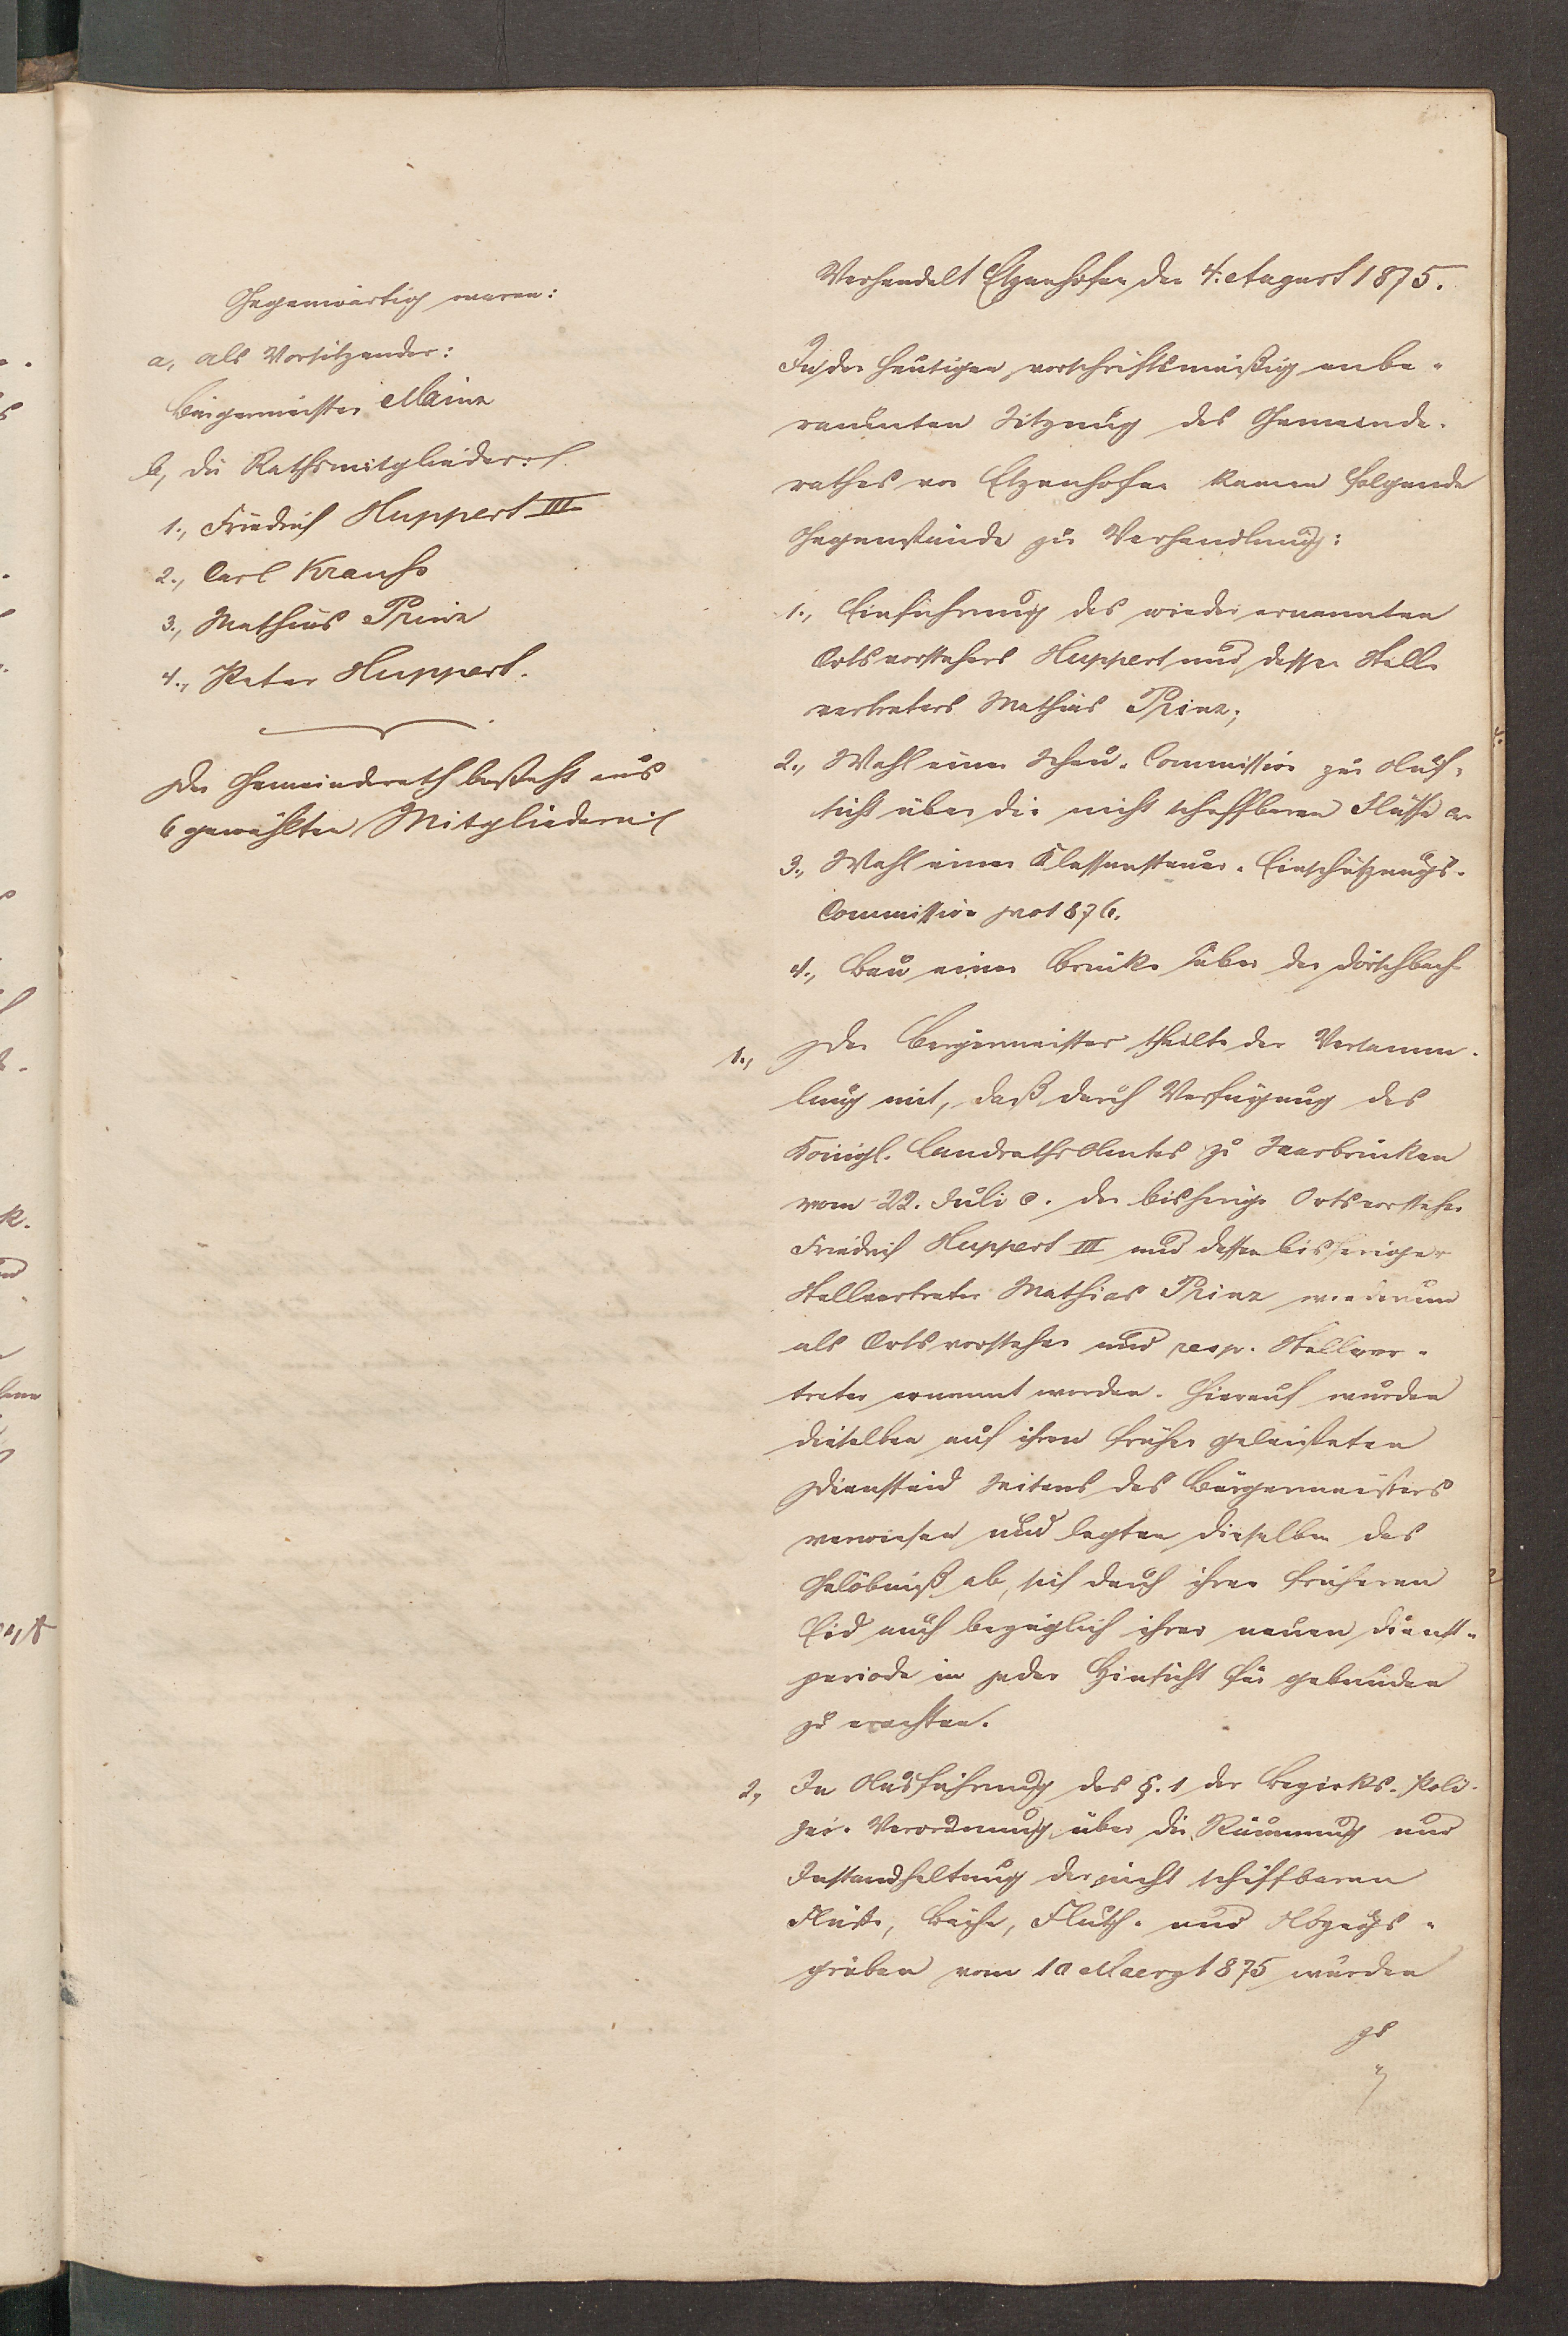 Gegenwärtig waren:
a, als Vorsitzender:
Bürgermeister Mainz
b, die Rathsmitglieder:
1., Friedrich Huppert III
2., Carl Krauss
3., Mathias Prinz
4., Peter Huppert.
Der Gemeinderath besteht aus
6 gewählten Mitgliedern
Verhandelt Etzenhofen den 4. August 1875.
In der heutigen vorschriftsmäßig anbe-
raumten Sitzung des Gemeinde-
rathes von Etzenhofen kamen folgende
Gegenstände zur Verhandlung:
1., Einführung des wieder ernannten
Ortsvorstehers Huppert und dessen Stell
vertreters Mathias Prinz;
2., Wahl einer Schau-Commission zur Auf-
sicht über die nicht schiffbaren Flüsse
3., Wahl einer Klassensteuer-Einschätzungs-
Commission pro 1876.
4., Bau einer Brücke über den Dörschbach
1., Der Bürgermeister theilte der Versamm-
lung mit, daß durch Verfügung des
Königl. Landraths Amtes zu Saarbrücken
vom 22. Juli c. der bisherige Ortsvorsteher
Friedrich Huppert III und dessen bisheriger
Stellvertreter Mathias Prinz wiederum
als Ortsvorsteher und resp. Stellver-
treter ernannt worden. Hierauf wurden
dieselben auf ihren früher geleisteten
Diensteid Seitens des Bürgermeisters
verwiesen und legten dieselben das
Gelöbniß ab, sich durch ihren früheren
Eid auch bezüglich ihrer neuen Dienst-
periode in jeder Hinsicht für gebunden
zu erachten.
2, In Ausführung des §. 1 der Bezirks-Poli-
zei-Verordnung über die Räumung und
Instandhaltung der nicht schiffbaren
Flüsse, Bäche, Fluth- und Abzugs-
gräben vom 10 Maerz 1875 wurden
zu